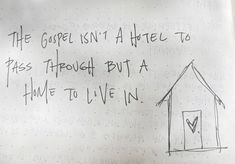 THE GOSPEL ISN'T A HOTEL TO
PASS THROUGH BUT A
HOME TO LIVE IN.